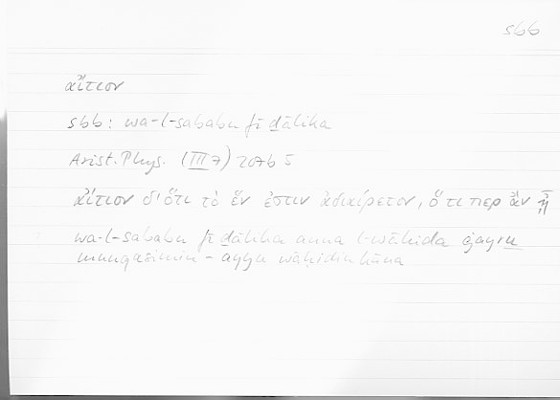 sbb
αἴτιον
sbb: wa-l-sababu fī ḏālika
Arist. Phys. (III 7) 207b5
αἴτιον δ' ὅτι τὸ ἕν ἐστιν ἀδιαίρετον, ὅ τι περ ἂν ᾖ
wa-l-sababu fī ḏālika anna l-wāḥida ġayru
munqasimin - ayyu wāḥidin kāna